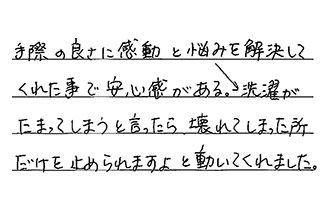 手際の良さに感動と悩みを解決して
くれた事で安心感がある。洗濯が
たまってしまうと言ったら壊れてしまった所
だけを止められますよと動いてくれました。